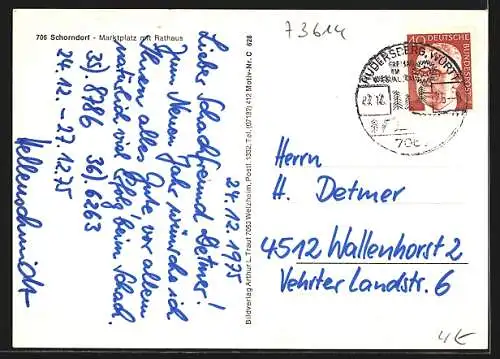 706 Schorndorf - Marktplatz mit Rathaus
73614
24.12.1975
Lieber Schachfreund Detmer!
Zum Neuen Jahr wünsche ich
Ihnen alles Gute, vor allem
natürlich viel Erfolg beim Schach.
35) 8786 36) 6263
24.12. - 27.12.75
Hellenschmidt
Bildverlag Arthur L. Traut 7063 Welzheim, Postf. 1332, Tel. (07182) 413 Motiv-Nr. C 628
RUDERSBERG, WÜRTT
AM
706
40 DEUTSCHE
BUNDESPOST
Herrn
H. Detmer
4512 Wallenhorst 2
Vehrter Landstr. 6
4€